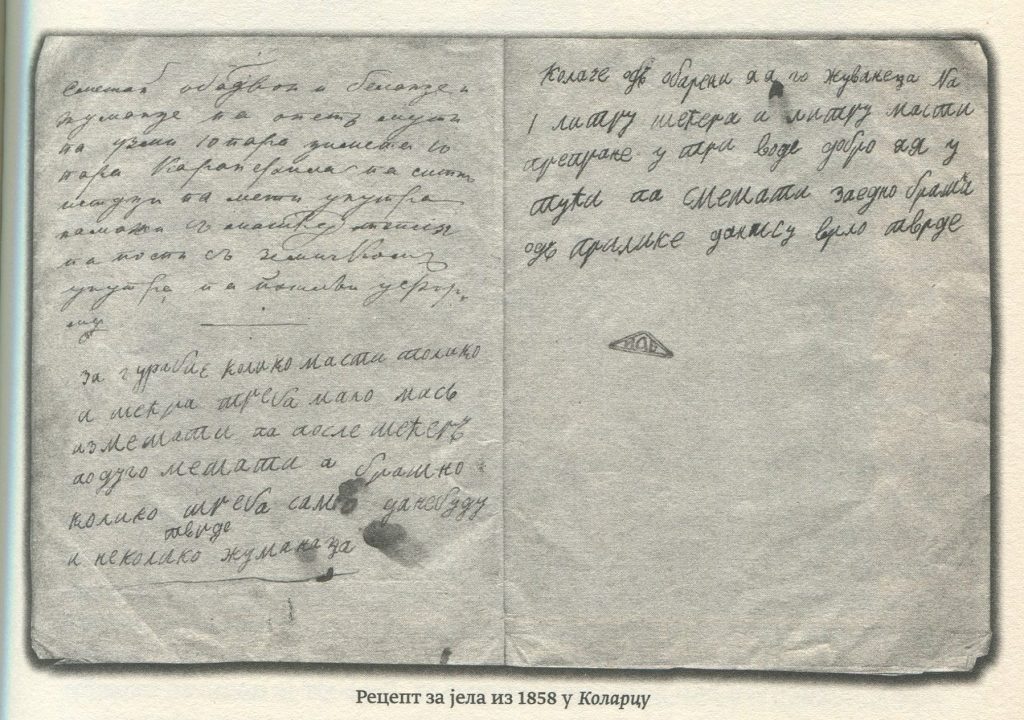 сметай обадвои и беланце и
жуманце па опетъ мути
па узми 10 пара цимета 5
пара Каранфила па ситно
истуци па мети унутра
па посли съ земичкомъ
унутра
За гурабіе колико масти толико
и шећра треба мало масъ
измешати па после шећеръ
подуго мешати а брашно
колико треба само да небуду
тврде
и неколико жуманаца
Колаче одъ обарени яя го жуванеца На
1 литру шећера и литру масти
препране у три воде добро яя у
тући па смешати заедно брашна
одъ прилике данису врло тврде
Рецепт за јела из 1858 у Коларцу